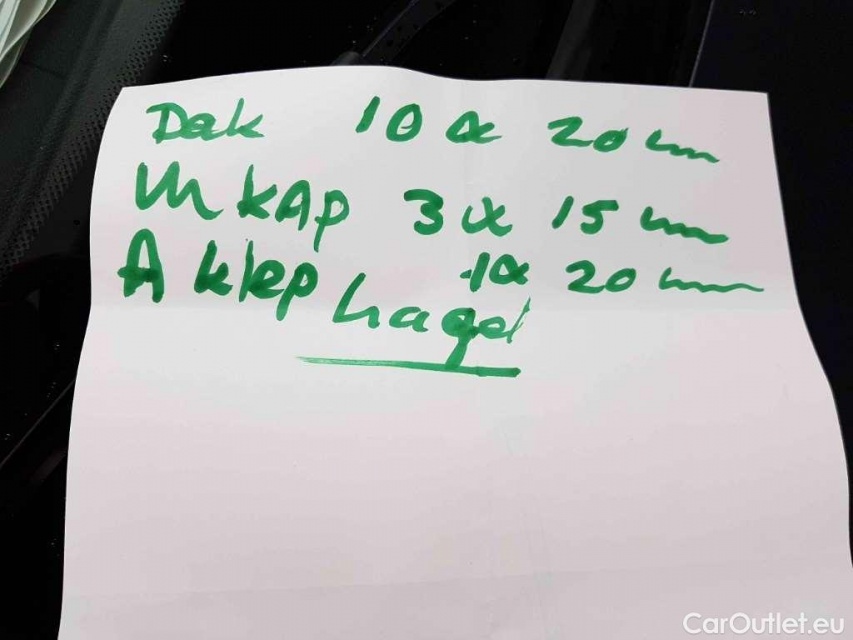 Dak 10 a 20 mm
M kap 3 a 15 mm
A klep 1 a 20 mm
hagel
CarOutlet.eu